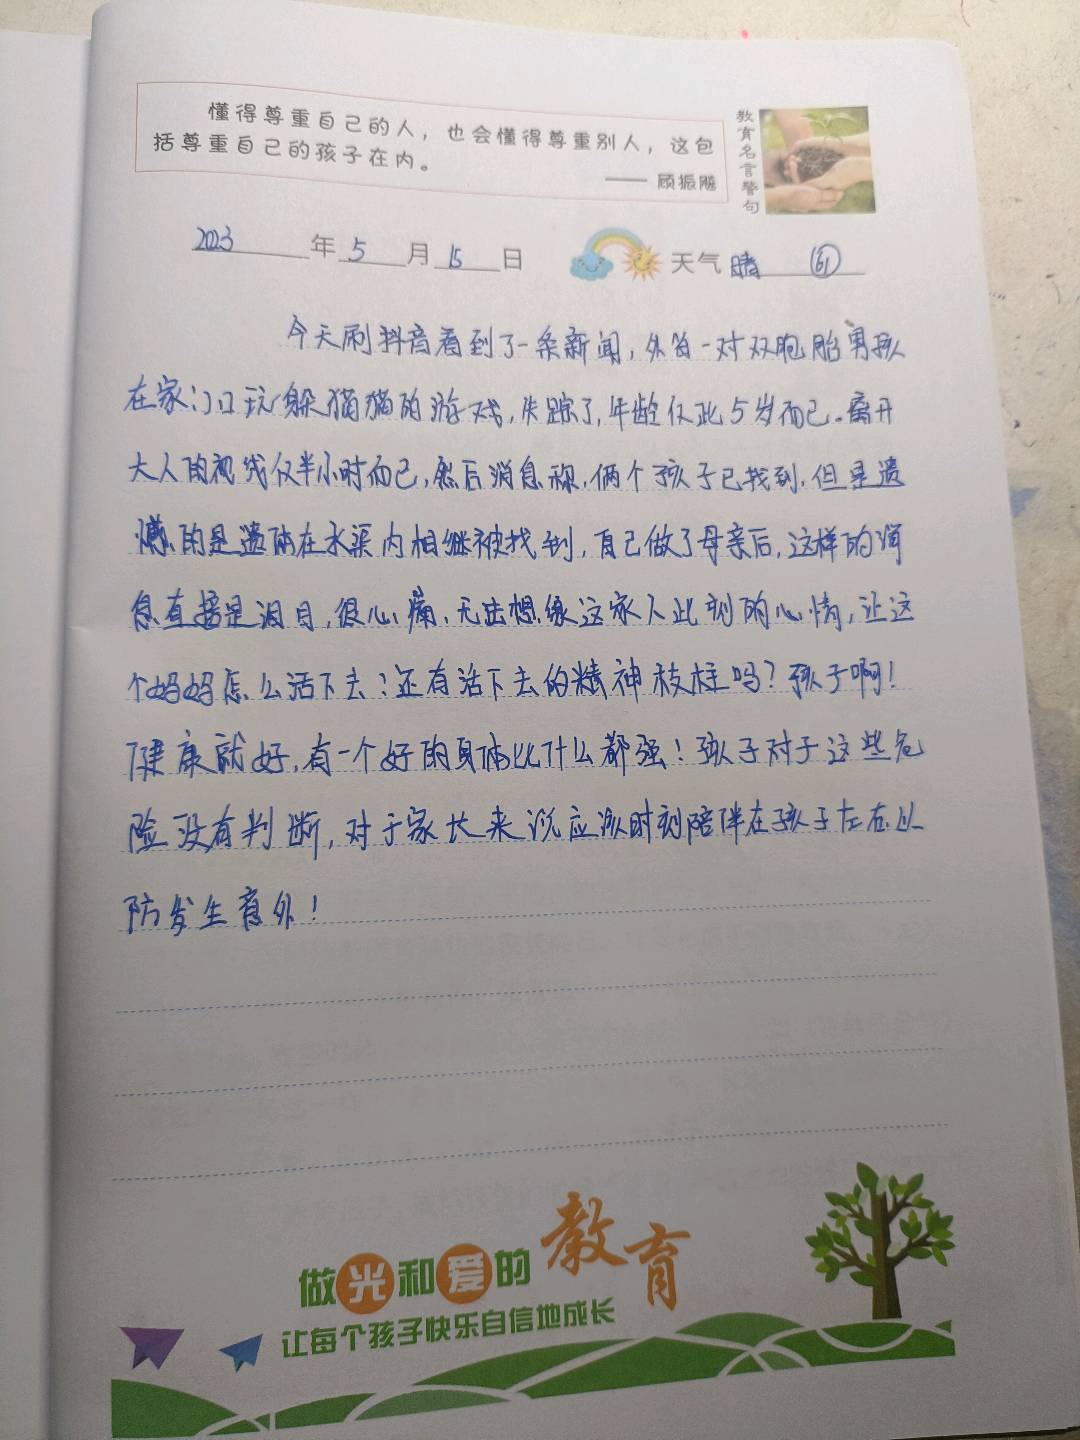 懂得尊重自己的人，也会懂得尊重别人，这包
括尊重自己的孩子在内。
—— 顾振飏
教育名言警句
2023年5月15日 天气晴 61
今天刷抖音看到了一条新闻，外省一对双胞胎男孩
在家门口玩躲猫猫的游戏，失踪了，年龄仅此5岁而已。离开
大人的视线仅半小时而已，然后消息称，俩个孩子已找到，但是遗
憾的是遗体在水渠内相继被找到，自己做了母亲后，这样的消
息直接是泪目，很心痛，无法想像这家人此刻的心情，让这
个妈妈怎么活下去？还有活下去的精神枝柱吗？孩子啊！
健康就好，有一个好的身体比什么都强！孩子对于这些危
险没有判断，对于家长来说应该时刻陪伴在孩子左右以
防发生意外！
做光和爱的教育
让每个孩子快乐自信地成长